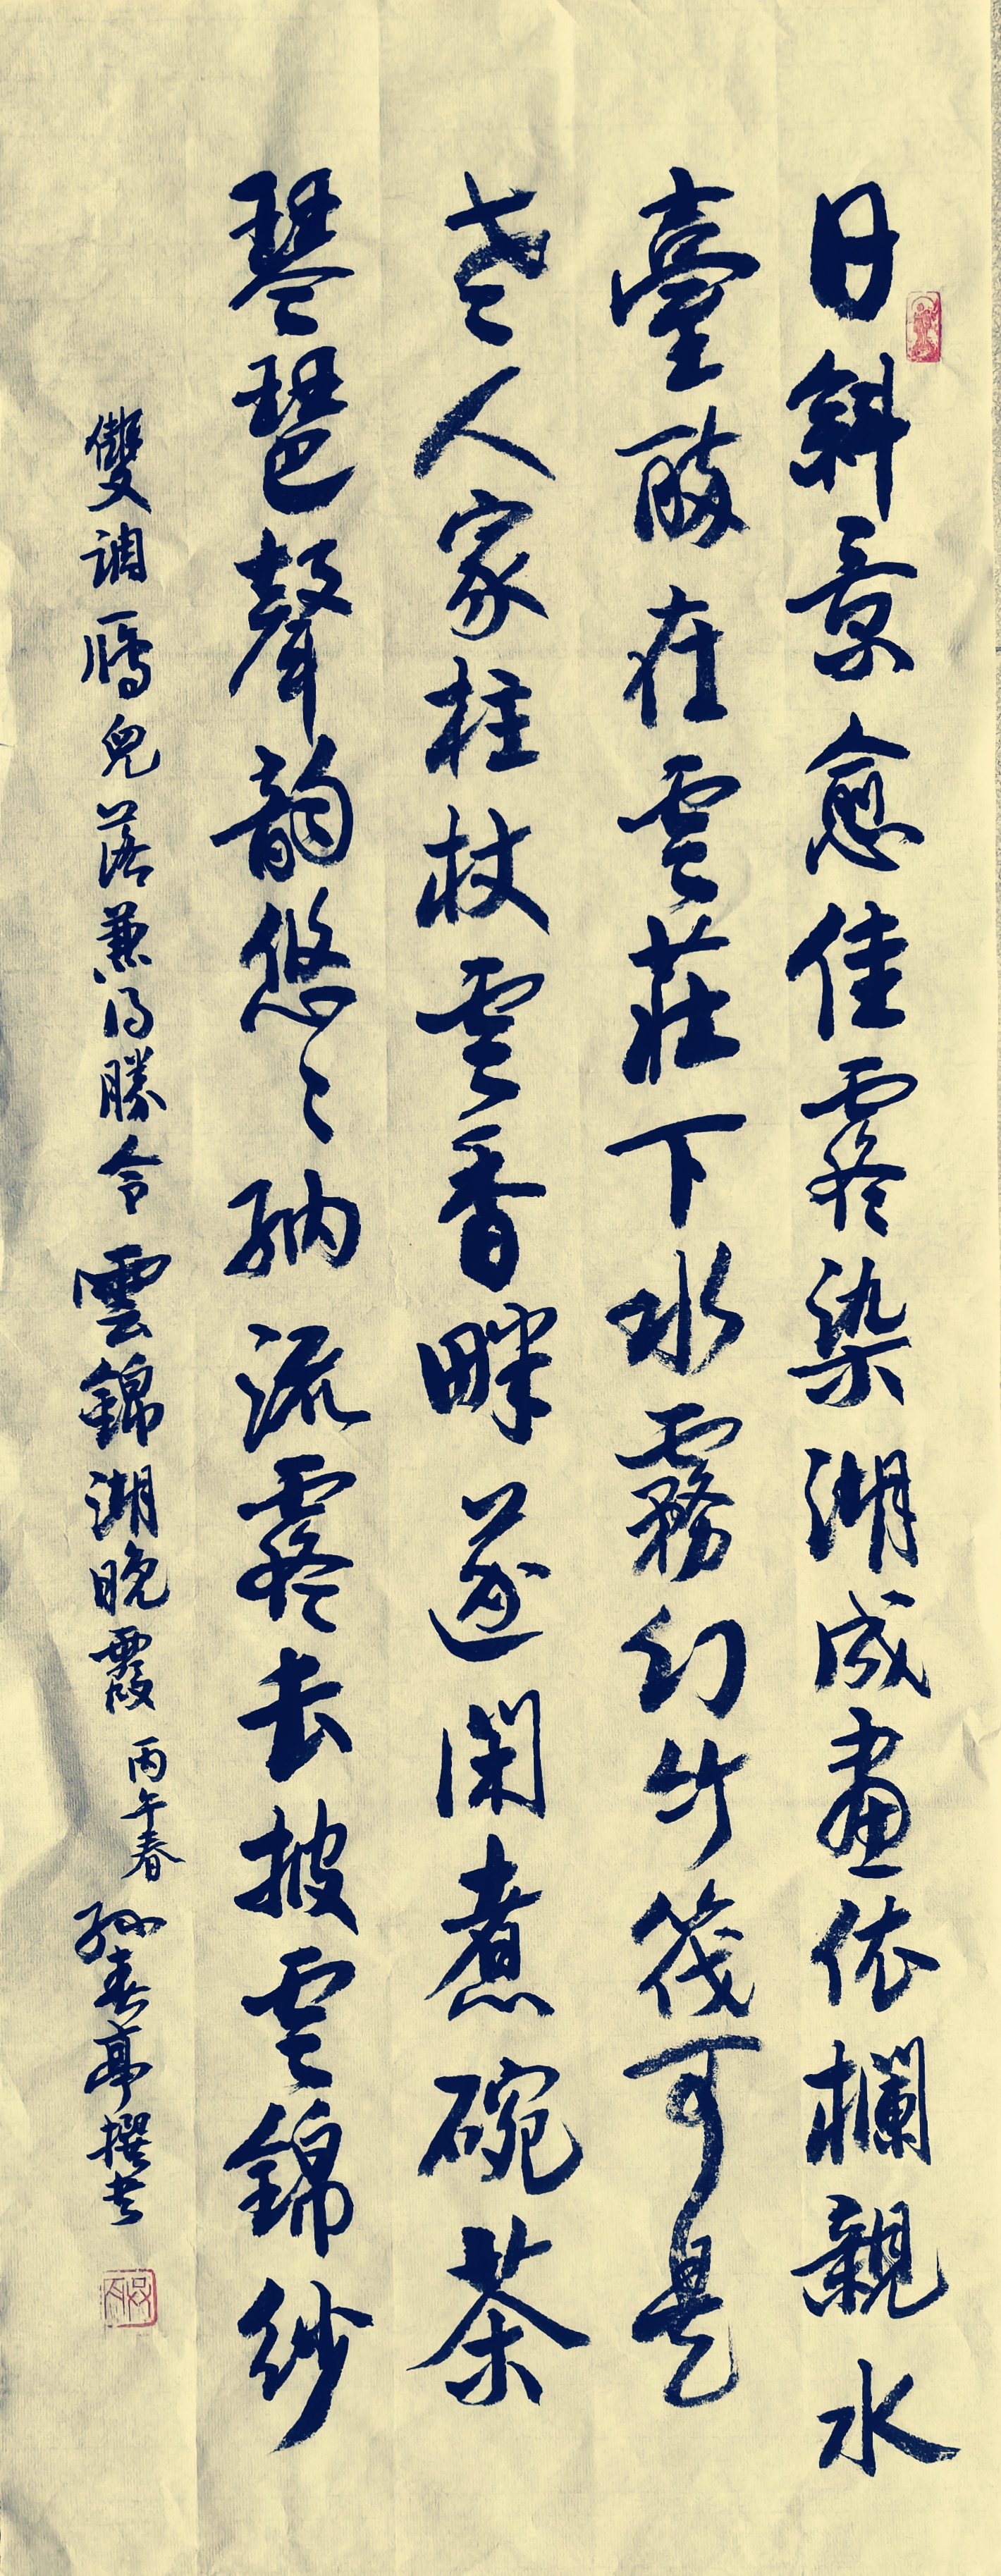 日斜景愈佳霞染湖成畫依欄親水
臺醉在雲莊下水霧幻竹筏可是
老人家柱杖雲香畔遂閑煮碗茶
琴琶聲韻悠々納流霞去披雲錦紗
雙調雁兒落兼得勝令 雲錦湖晚霞 丙午春 孫春亭撰书